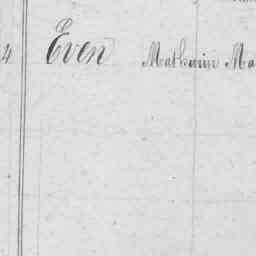 4 Even Mathurin Ma